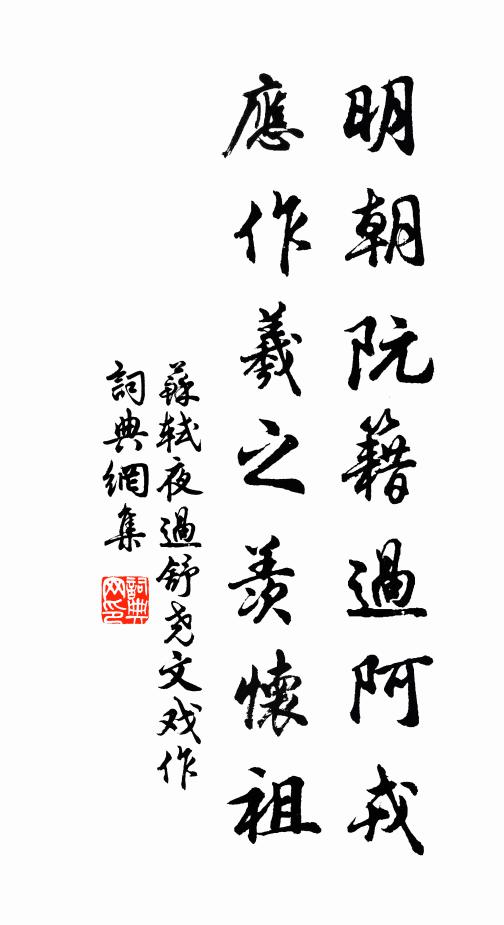 明朝阮籍過阿戎
應作羲之羨懷祖
蘇軾夜過舒尧文戏作
詞典網集
詞典网印